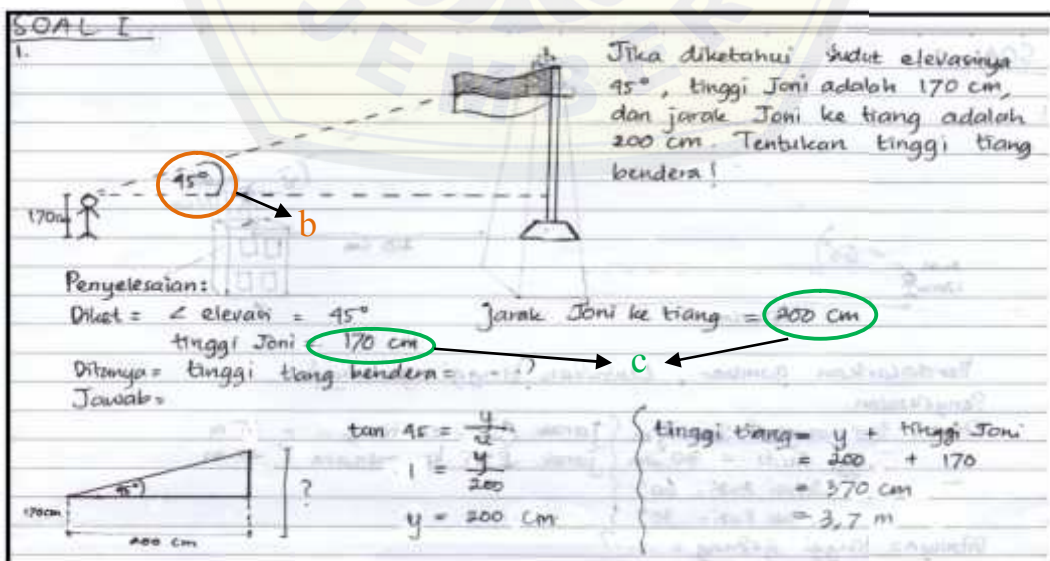 SOAL I
1.
Jika diketahui sudut elevasinya
45°, tinggi Joni adalah 170 cm,
dan jarak Joni ke tiang adalah
200 cm. Tentukan tinggi tiang
bendera!
45°
b
170cm
Penyelesaian:
Diket = ∠ elevasi = 45°
Jarak Joni ke tiang = 200 cm
tinggi Joni = 170 cm
c
Ditanya = tinggi tiang bendera = ...?
Jawab =
tan 45 = y/x
1 = y/200
y = 200 cm
tinggi tiang = y + tinggi Joni
= 200 + 170
= 370 cm
= 3,7 m
45°
?
170cm
200 cm